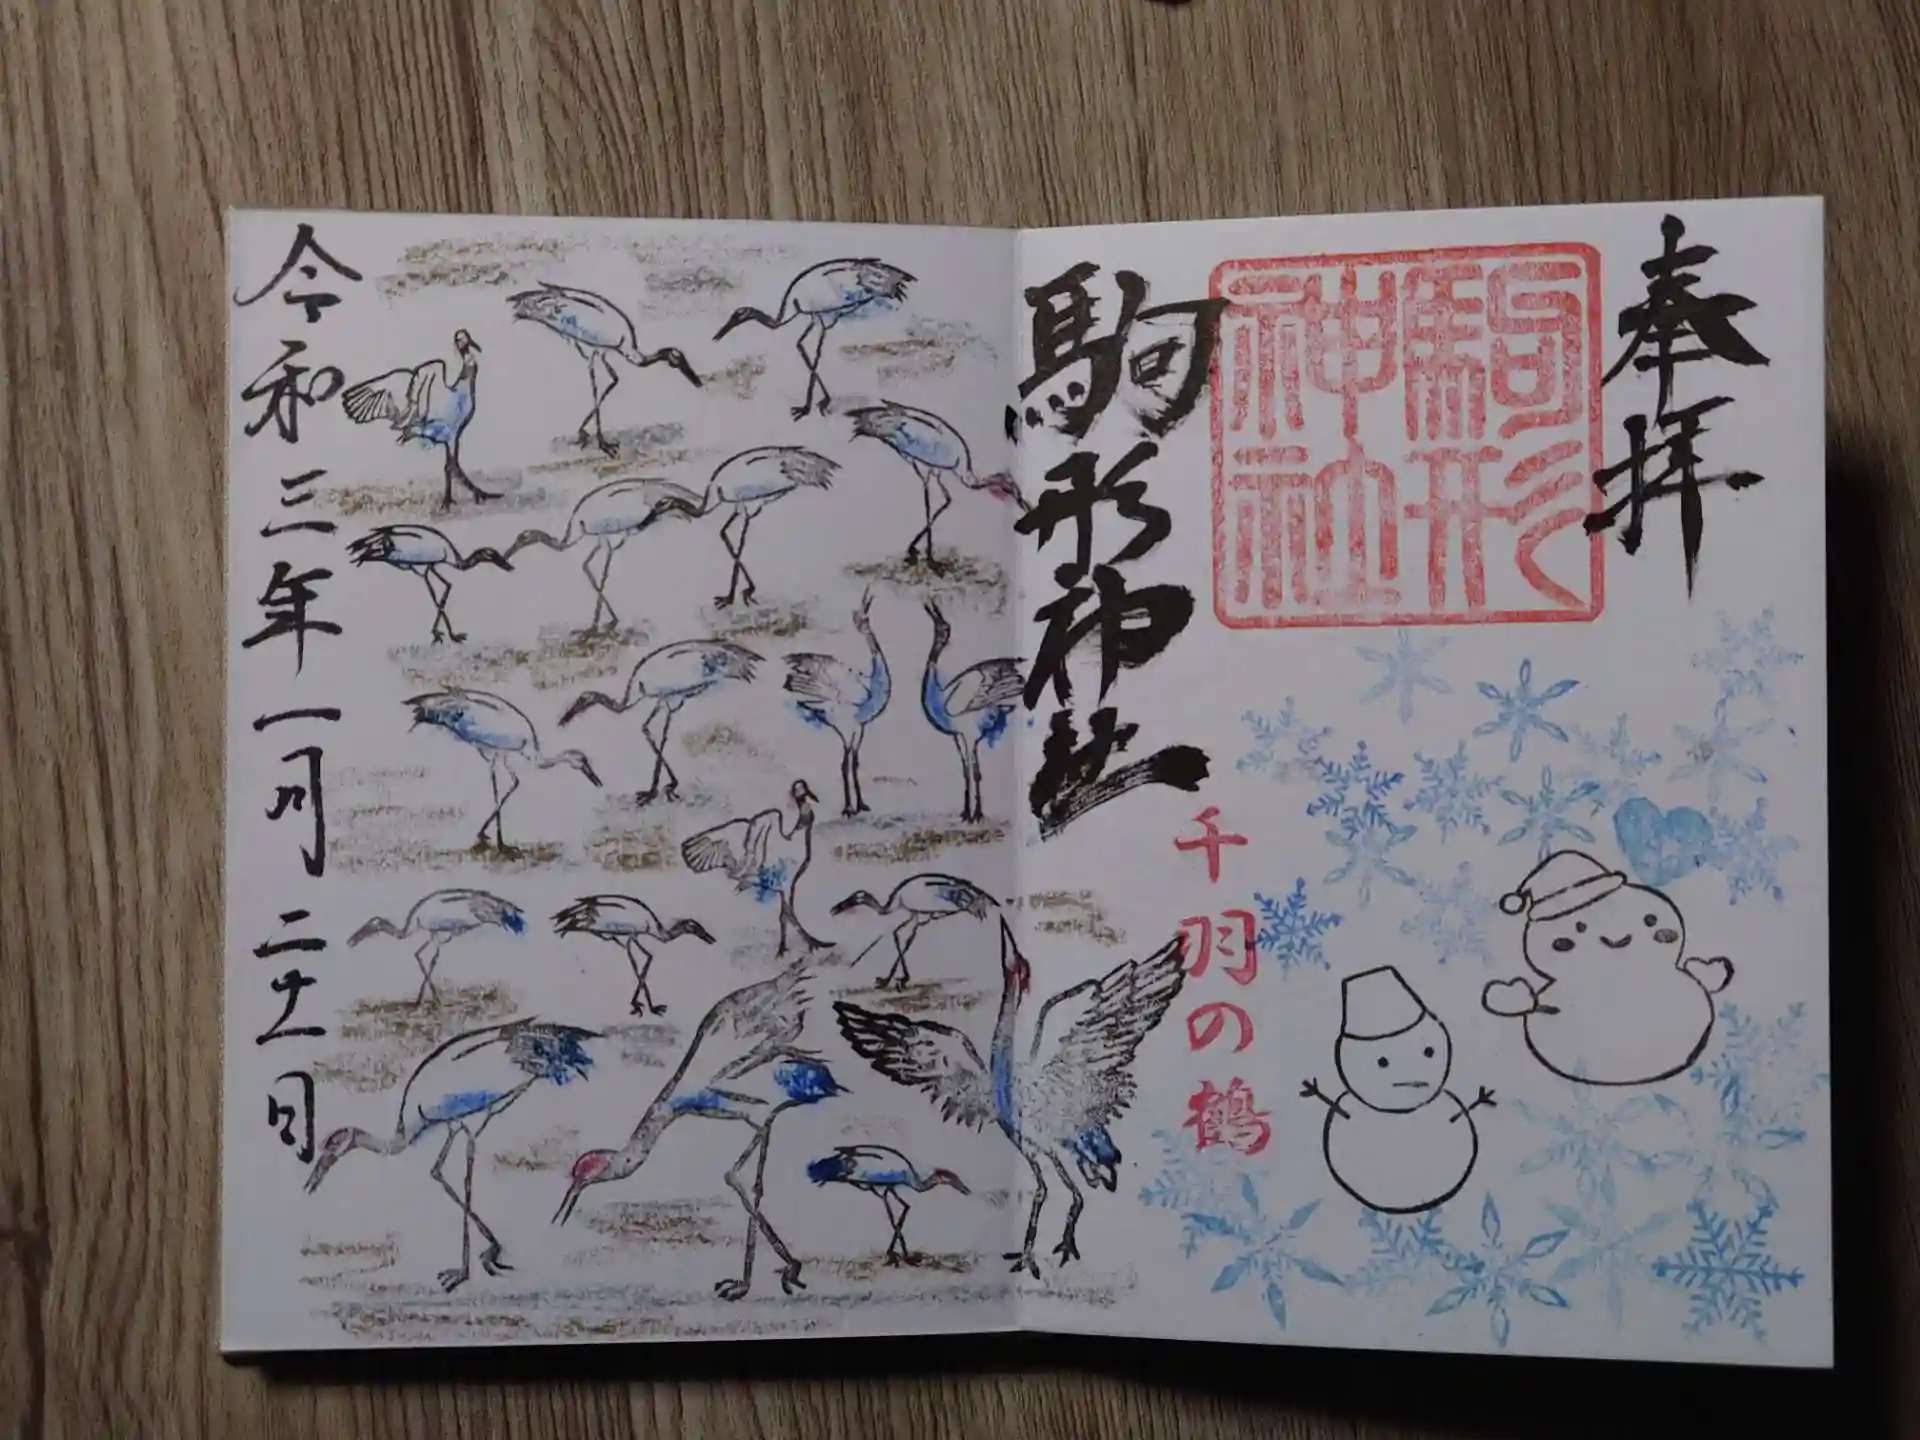 奉拝
駒形神社
駒形神社
千羽の鶴
令和三年一月二十一日